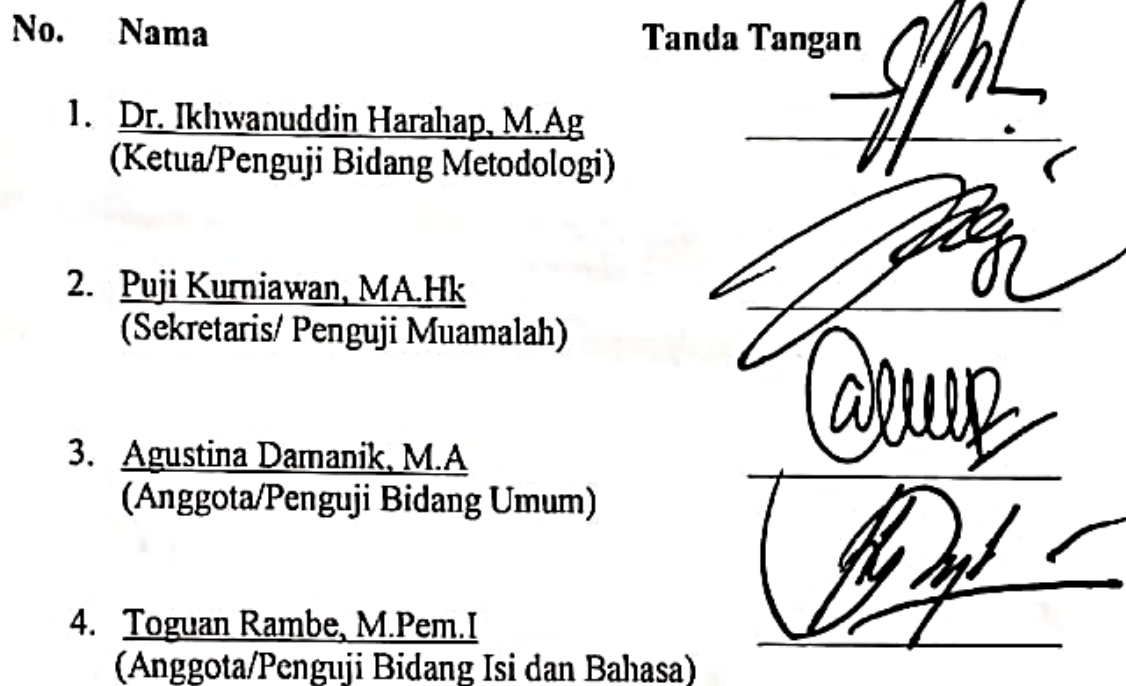 No. Nama Tanda Tangan
1. Dr. Ikhwanuddin Harahap, M.Ag
(Ketua/Penguji Bidang Metodologi)
2. Puji Kurniawan, MA.Hk
(Sekretaris/ Penguji Muamalah)
3. Agustina Damanik, M.A
(Anggota/Penguji Bidang Umum)
4. Toguan Rambe, M.Pem.I
(Anggota/Penguji Bidang Isi dan Bahasa)